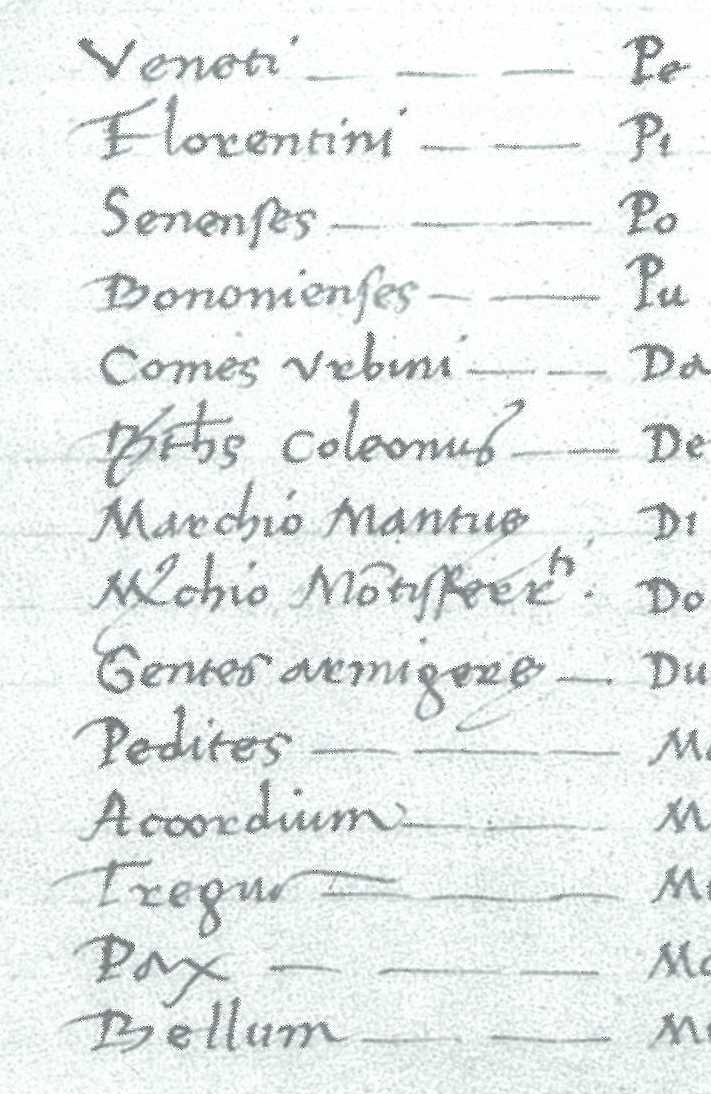 Veneti — — — Pe
Florentini — — Pi
Senenses — — Po
Bononienses — — Pu
Comes Vrbini — — Da
Bths Coleonus — — De
Marchio Mantue Di
Mchio Mōtisferrti. Do
Gentes armigere — Du
Pedites — — — Ma
Accordium — — M
Tregua — — — M
Pax — — — Mo
Bellum — — M